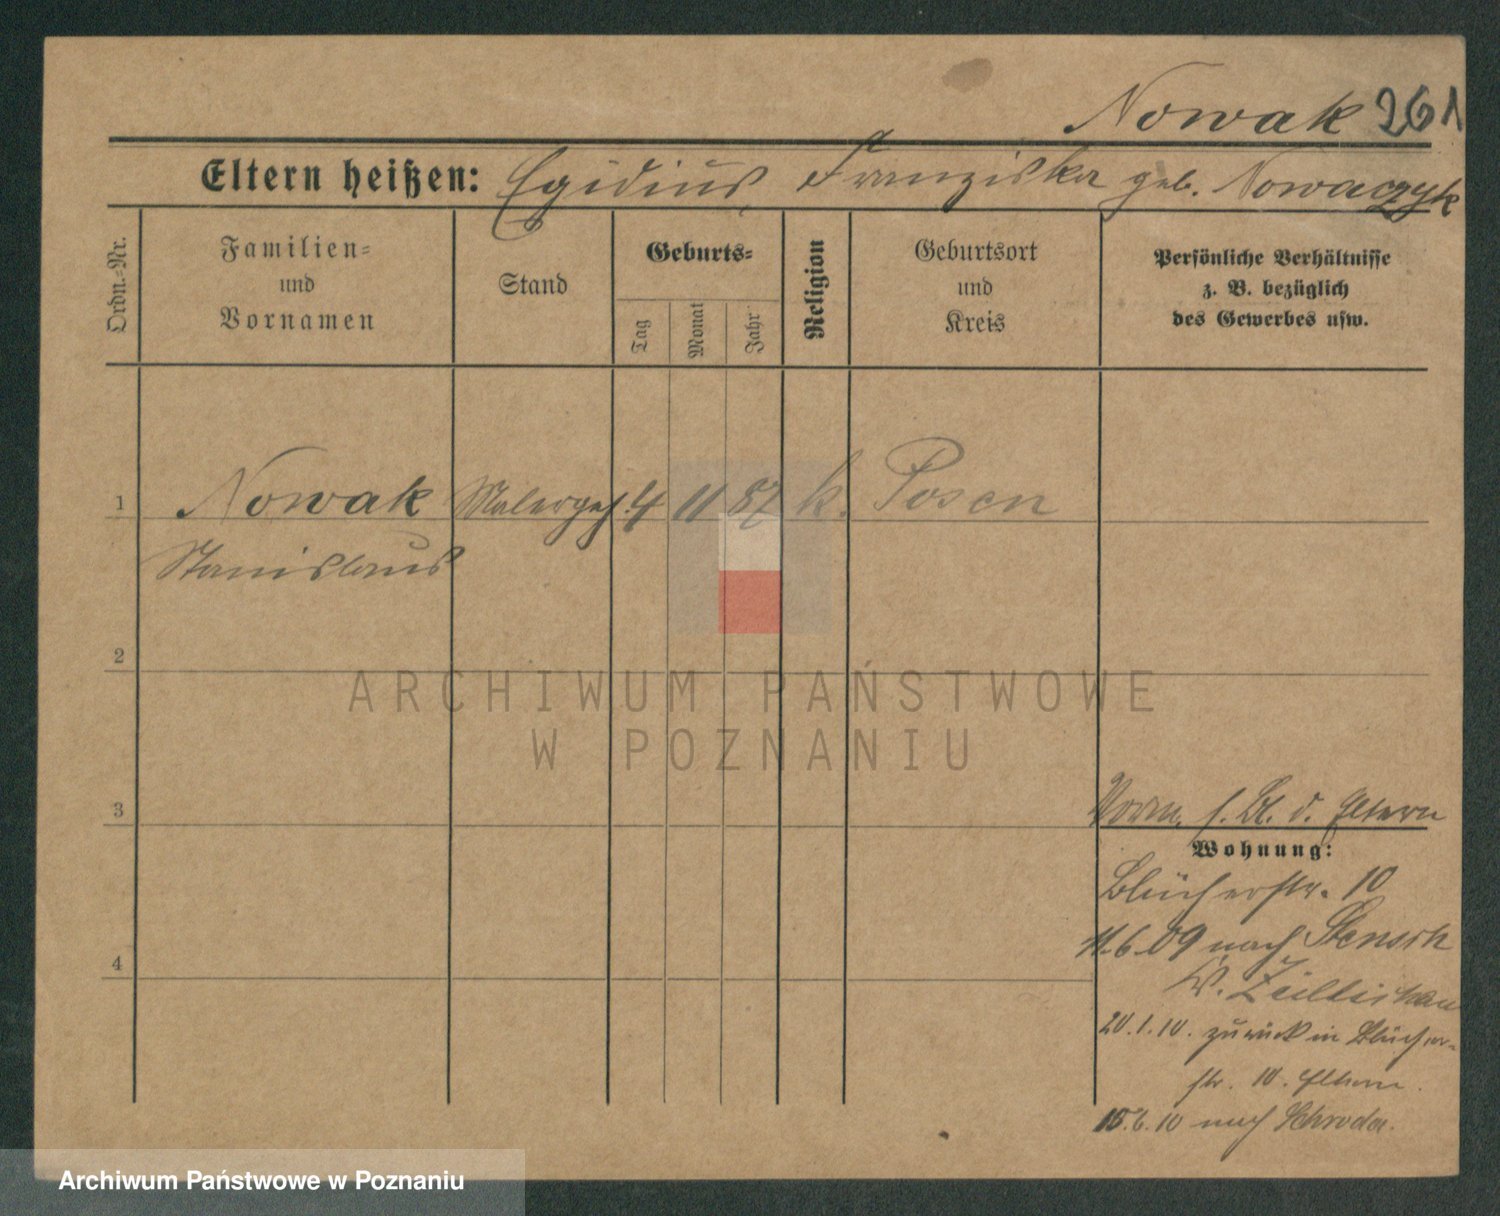 Nowak 261
Eltern heißen: Egidius, Franziska geb. Nowaczyk
Ordn.-Nr.
Familien-
und
Vornamen
Stand
Geburts-
Tag
Monat
Jahr
Religion
Geburtsort
und
Kreis
Persönliche Verhältnisse
z. B. bezüglich
des Gewerbes usw.
1 Nowak Malergeh. 4 11 87 k. Posen
Stanislaus
2
ARCHIWUM PAŃSTWOWE
W POZNANIU
3
Vorm. s. Bl. d. Eltern
Wohnung:
Blücherstr. 10
11.6.09 nach Stensch
K. Züllichau
4
20.1.10. zurück in Blücher-
str. 10. Eltern.
15.6.10 nach Schroda.
Archiwum Państwowe w Poznaniu